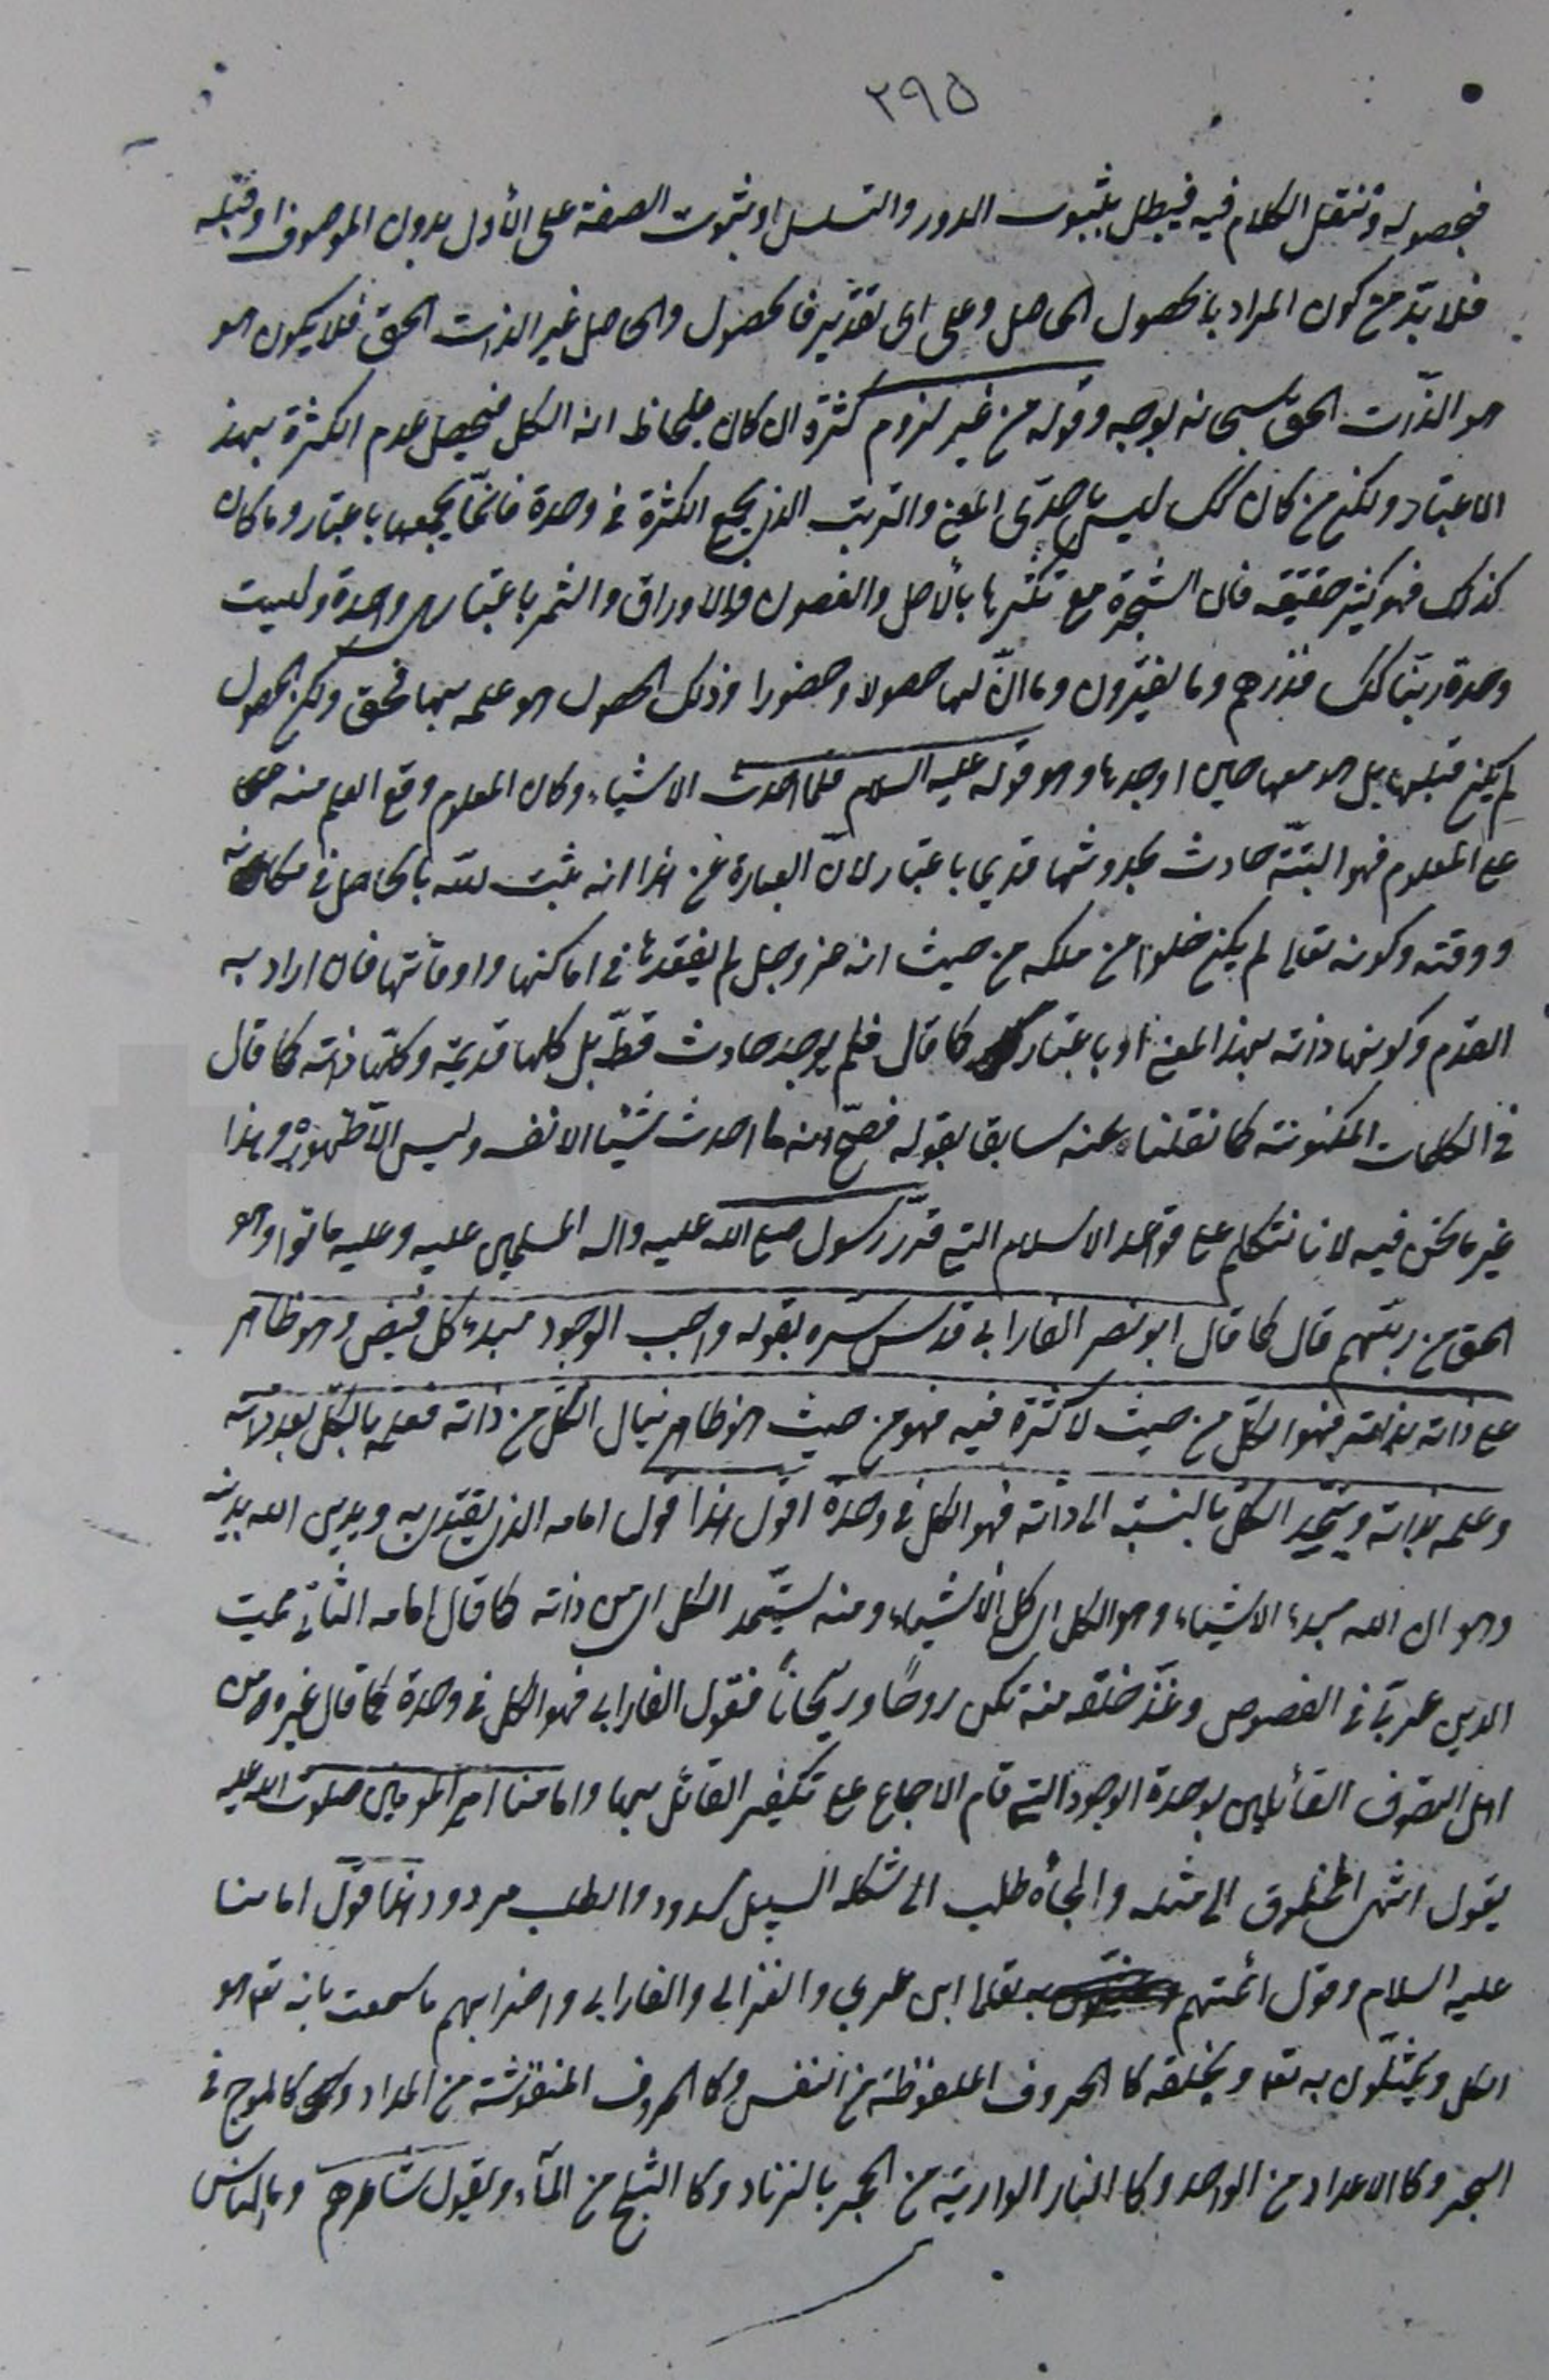 ٢٩٥
فحصوله وننقل الكلام فيه فيبطل بثبوت الدور والتسلسل او بثبوت الصفة على الأول بدون الموصوف او قبله
فلا بدّ من كون المراد بالحصول الحاصل وعلى اى تقدير فالحصول والحاصل غير الذات الحق فلا يكون هو
هو الذّات الحق سبحانه بوجه وقوله من غير لزوم كثرة ان كان بلحاظ انه الكل فيحصل عدم الكثرة بهذا
الاعتبار ولكن من كان كك ليس باحدىّ المعنى والترتب الذى يجمع الكثرة فى وحدة فانّما يجمعها باعتبار وما كان
كذلك فهو كثير حقيقة فان الشجرة مع تكثرها بالأصل والغصون والاوراق والثمر باعتبار هى واحدة وليست
وحدة ربّنا كك فذرهم وما يفترون وما انّ لها حصولا وحضورا وذلك الحصول هو علمه بها فحق ولكن الحصول
لم يكن قبلها بل هو معها حين اوجدها وهو قوله عليه السلام فلما احدث الاشياء وكان المعلوم وقع العلم منه
على المعلوم فهو البتّة حادث بحدوثها قديم باعتبار لانّ العبارة عن هذا انه يثبت للّه بالحاصل فى مكانه
ووقته وكونه تعالى لم يكن خلوا من ملكه من حيث انه عز وجل لم يفقدها فى اماكنها واوقاتها فان اراد به
القدم وكونها ذاته بهذا المعنى او باعتبار كما قال فلم يوجد حادث قطّ بل كلها قديمة وكلّها ذاته كما قال
فى الكلمات المكنونة كما نقلناه عنه سابقا بقوله فصحّ انه ما احدث شيئا الا نفسه وليس الاّ ظهوره وهذا
غير ما نحن فيه لانا نتكلم على قواعد الاسلام التى قرّر رسول صلى الله عليه واله المسلمين عليه وعليه ماتوا وهو
الحق من ربّهم قال كما قال ابو نصر الفارابى قدس سره بقوله واجب الوجود مبدء كل فيض وهو ظاهر
على ذاته بذاته فهو الكلّ من حيث لا كثرة فيه فهو من حيث هو ظاهر ينال الكل من ذاته فعلمه بالكل بعد ذاته
وعلمه بذاته ويتّحد الكل بالنسبة الى ذاته فهو الكل فى وحدة اقول هذا قول امامه الذى يقتدى به ويدين الله بدينه
وهو ان الله مبدء الاشياء وهو الكل اى كل الأشياء ومنه يستمد الكل اى من ذاته كما قال امامه الثّانى مميت
الدين عربىّ فى الفصوص وغذّ خلقه منه تكن روحًا وريحانًا فقول الفارابى فهو الكل فى وحدة كما قال غيره من
اهل التصوف القائلين بوحدة الوجود التى قام الاجماع على تكفير القائل بها وامامنا امير المؤمنين صلوات الله عليه
يقول انتهى المخلوق الى مثله والجأه طلب الى شكله السبيل مسدود والطلب مردود هذا قول امامنا
عليه السلام وقول ائمتهم ابن عربي والغزالى والفارابى واضرابهم ما سمعت بانه تع هو
الكل ويمثّلون به تع وبخلقه كالحروف الملفوظة من النفس وكالحروف المنقوشة من المداد وكالموج فى
البحر وكالاعداد من الواحد وكالنار الوارية من الحجر بالزناد وكالثلج من المآء ويقول شاعرهم وما الناس